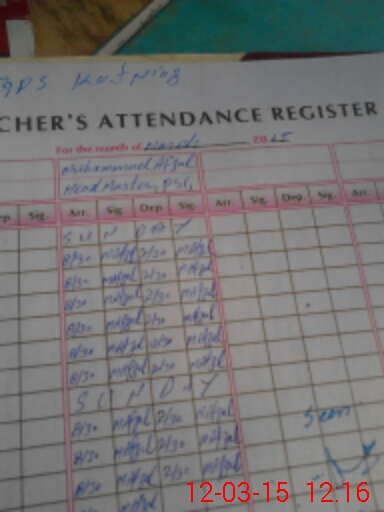 CHER'S ATTENDANCE REGISTER
For the month of March 2015
Muhammad Afzal
Head Master, PST,
Sig. Arr. Sig. Dep. Sig. Arr. Sig. Dep. Sig. Arr.
SUNDAY
8/30 MAfzal 2/30 MAfzal
8/30 MAfzal 2/30 MAfzal
8/30 MAfzal 2/30 MAfzal
8/30 MAfzal 2/30 MAfzal
8/30 MAfzal 2/30 MAfzal
8/30 MAfzal 2/30 MAfzal
SUNDAY
8/30 MAfzal 2/30 MAfzal
8/30 MAfzal 2/30 MAfzal
8/30 MAfzal 2/30 MAfzal
8/30 MAfzal
Seen
12-03-15 12:16